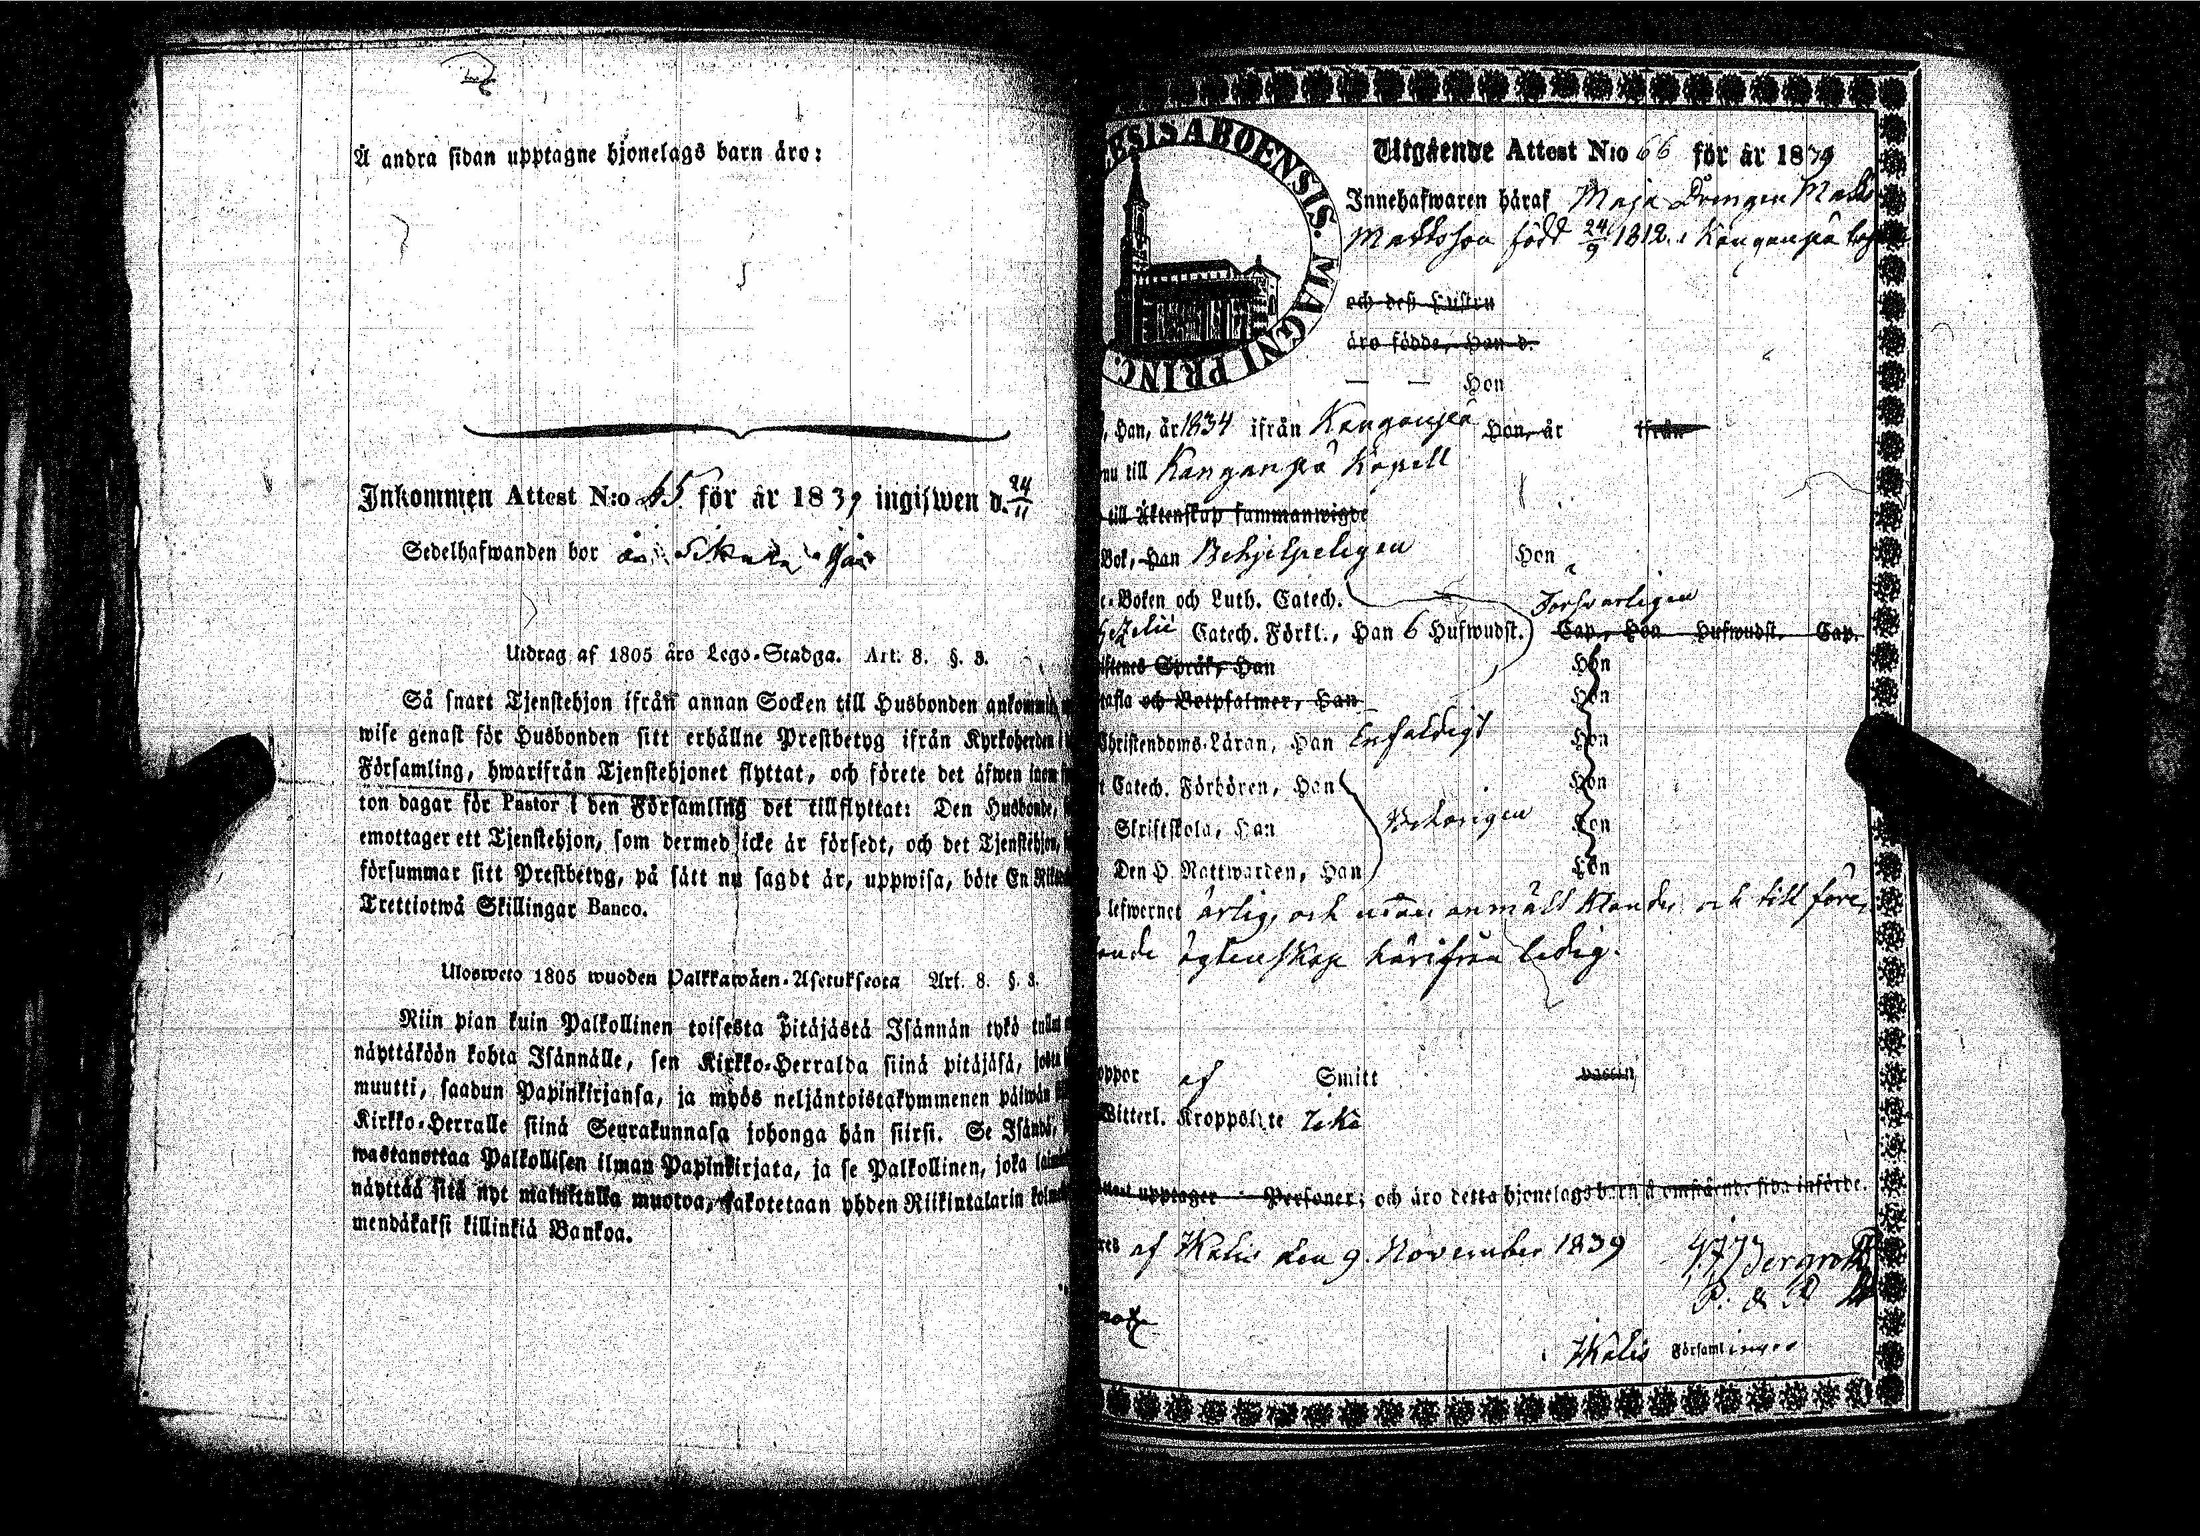 Å andra sidan upptagne hjonelags barn äro:
Inkommen Attest N:o 65 för år 1839 ingifwen d. 24/11
Sedelhafwanden bor
Utdrag af 1805 års Lego-Stadga. Art. 8. §. 3.
Så snart Tjenstehjon ifrån annan Socken till Husbonden
wise genast för Husbonden sitt erhållne Prestbetyg ifrån Kyrkoherden
Församling, hwarifrån Tjenstehjonet flyttat, och förete det äfwen
ton dagar för Pastor i den Församling det tillflyttat: Den Husbonde,
emottager ett Tjenstehjon, som dermed icke är försedt, och det Tjenstehjon,
försummar sitt Prestbetyg, på sätt nu sagdt är, uppwisa, böte En
Trettiotwå Skillingar Banco.
Ulosweto 1805 wuoden Palkkawäen-Asetuksesta Art. 8. §. 3.
Niin pian kuin Palkollinen toisesta pitäjästä Isännän tykö
näyttäköön kohta Isännälle, sen Kirkko-Herralda siinä pitäjäsä,
muutti, saadun Papinkirjansa, ja myös neljäntoistakymmenen päiwän
Kirkko-Herralle siinä Seurakunnasa johonga hän siirsi. Se Isändä,
wastanottaa Palkollisen ilman Papinkirjata, ja se Palkollinen, joka
näyttää sitä nyt mainitulla muotoa, sakotetaan yhden Riikintalarin
mendäkaksi killinkiä Bankoa.
ESISABOENSIS. MAGNI PRINC.
Utgående Attest N:o 66 för år 1839
Innehafwaren häraf Maja Drengen Matts
Mattsson född 24/9 1812 i Kanganpä
och dess Hustru
äro födde, Han d.
Hon
, Han, år 1834 ifrån Kanganpä Hon, år ifrån
nu till Kanganpä Kapell
till Äktenskap sammanwigde
Bok, Han Behjelpeligen Hon
c-Boken och Luth. Catech. Försvarligen
Catech. Förkl., Han 6 Hufwudst. Cap., Hon Hufwudst. Cap.
Språk, Han Hon
tafla och Botpsalmer, Han Hon
Christendoms-Läran, Han Enfaldigt Hon
Catech. Förhören, Han Hon
Skriftskola, Han Behörigen Hon
Den H. Nattwarden, Han Hon
lefwernet ärlig, och utan anmält klander och till före
ande ägtenskap härifrån ledig.
oppor af Smitt
Witterl. Kroppslyte Icke
upptager Personer; och äro detta hjonelags barn å omstående sida införde.
af Ikalis den 9. November 1839 Bergroth
Ikalis Församlinges